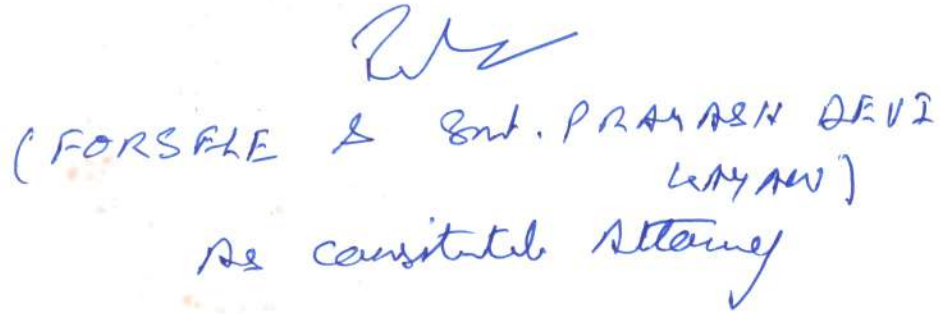 (FOR SELF & Smt. PRAYASH DEVI
As constituted Attorney